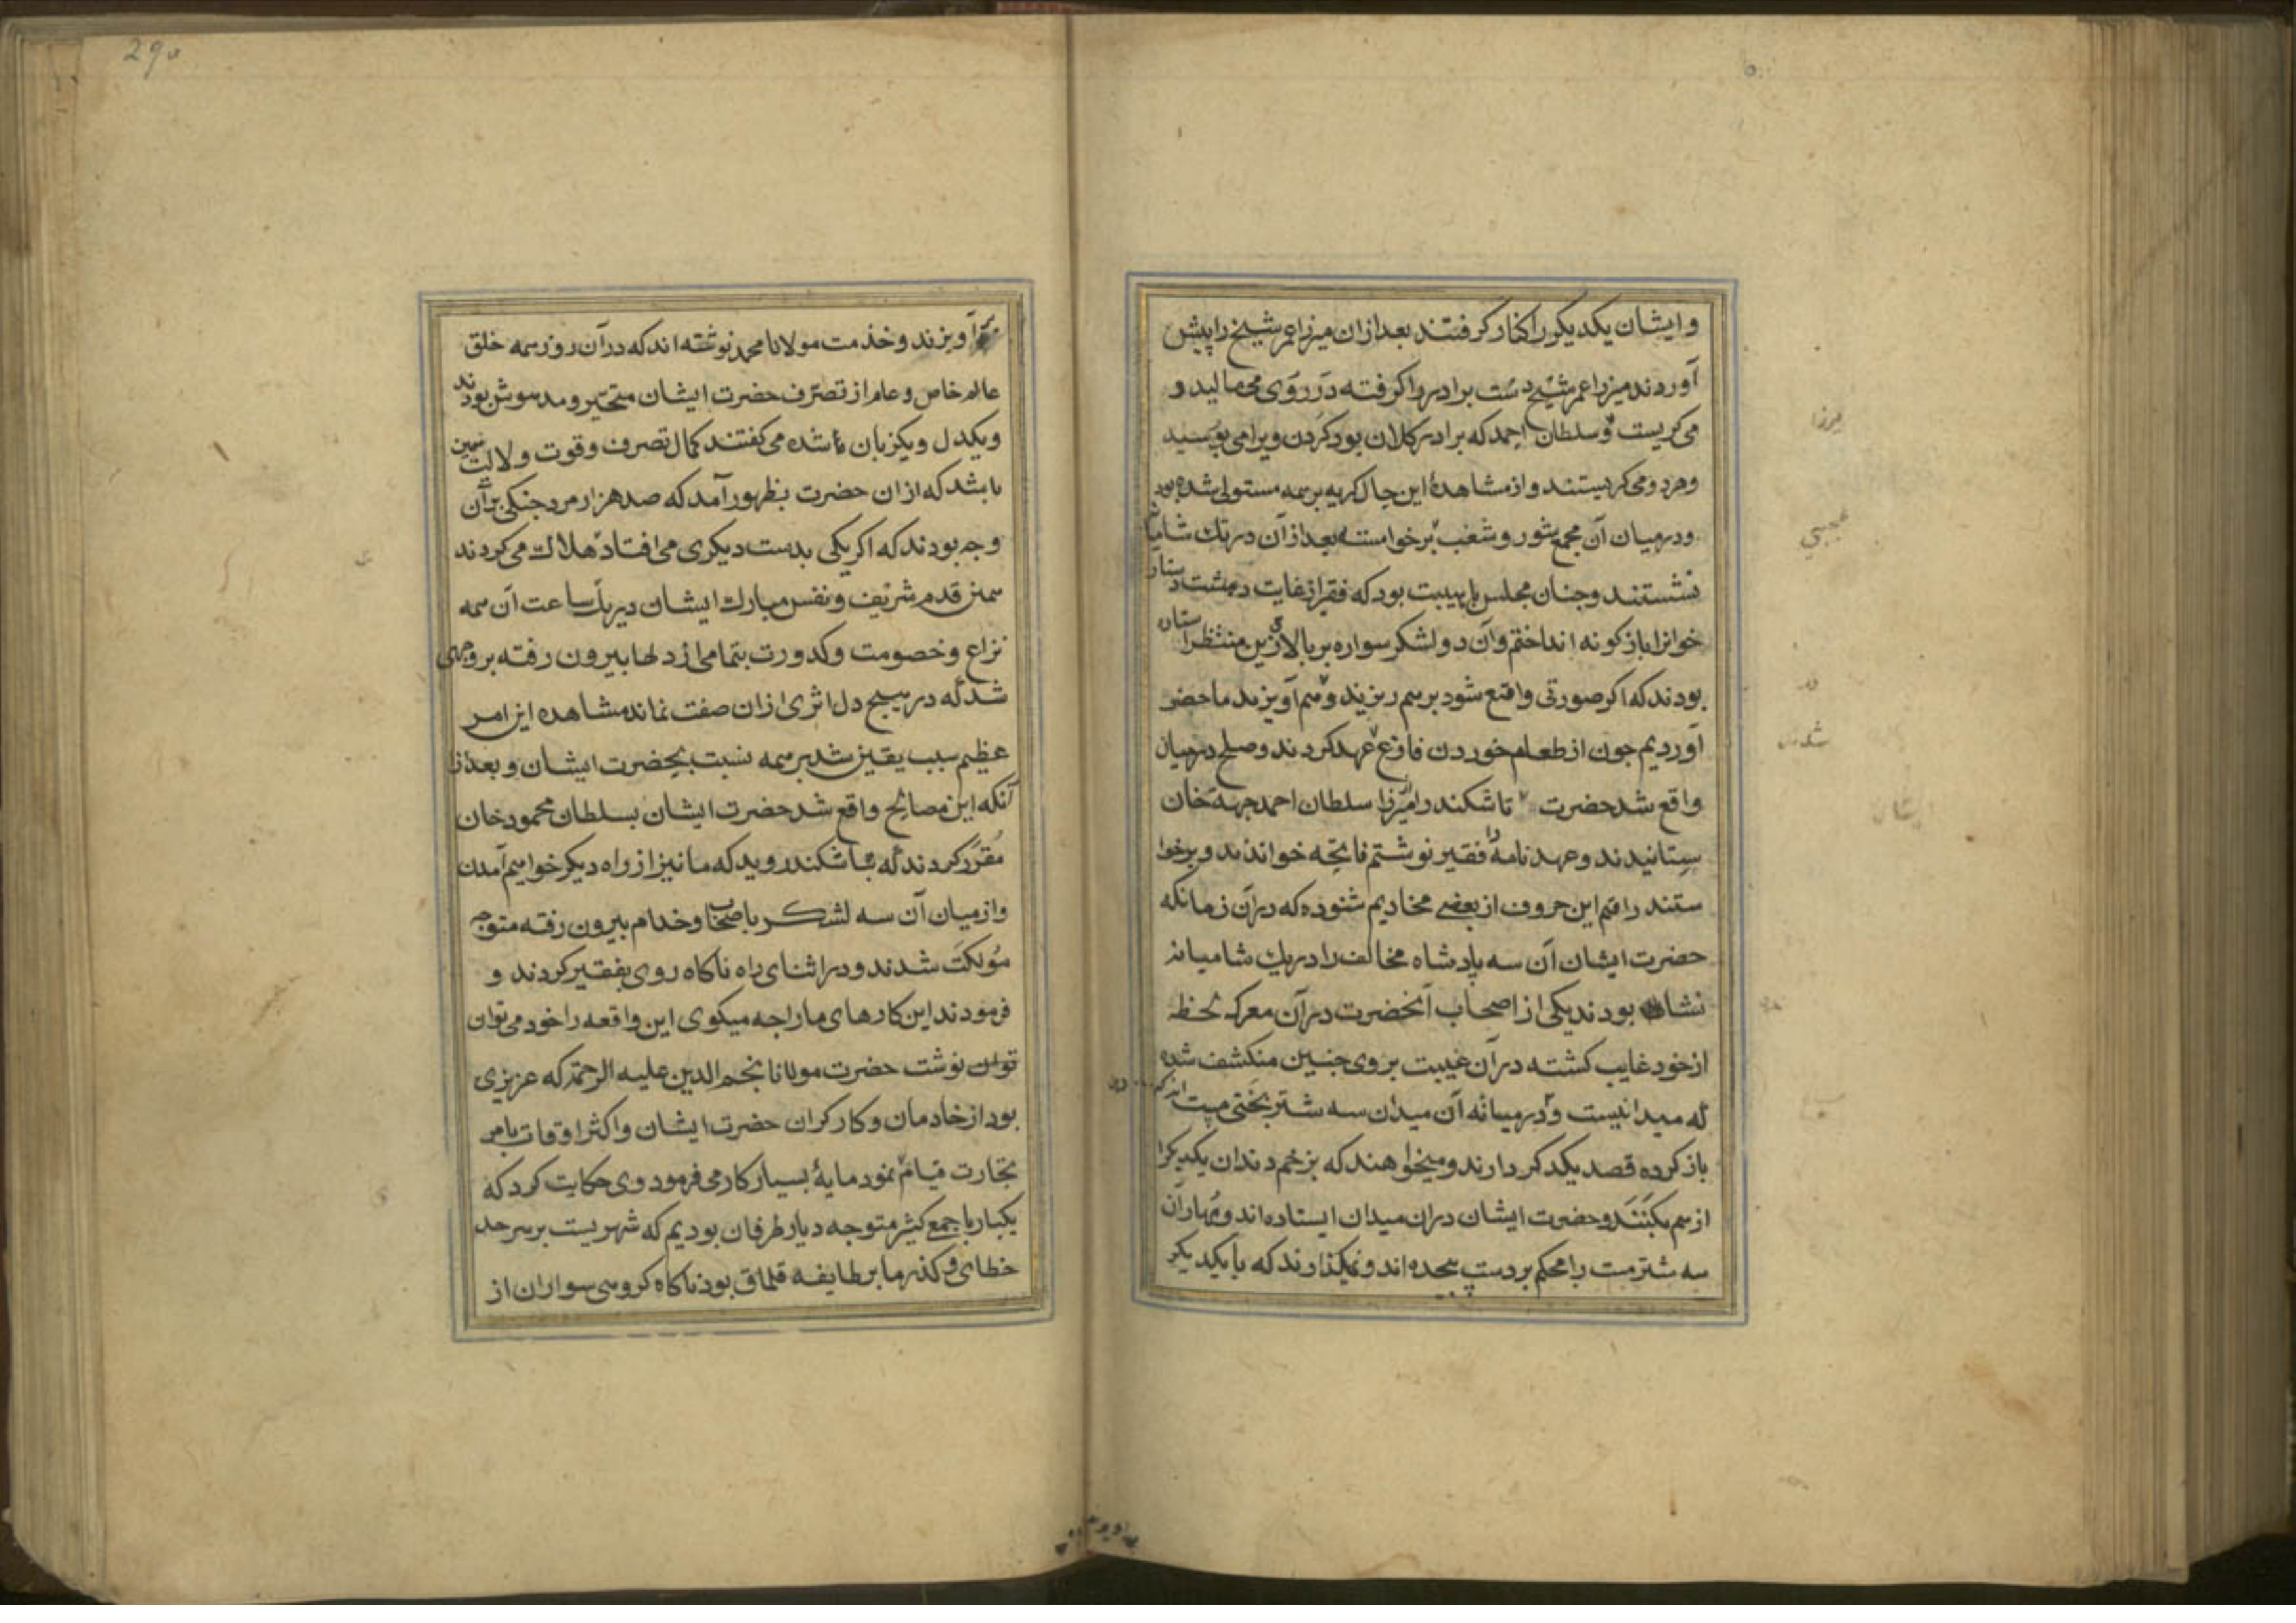 وایشان یکدیکر را کنار کرفتند بعد ازان میرزا عمر شیخ را پیش
آوردند میرزا عمر شیخ دست برادر را کرفته در روی می مالید و
می کریست و سلطان احمد که برادر کلان بود کردن ویرا می بوسید
وهردو می کریستند واز مشاهدهٔ این حال کریه بر همه مستولی شده بود
ودرمیان آن مجمع شور و شغب برخواسته بعد ازان در تک شامیا
نشستند وجنان مجلس با هیبت بود که فقیر از غایت دهشت دستار
خوانرا باژکونه انداختم وآن دو لشکر سواره بر بالای زین منتظر ایستاده
بودند که اکر صورتی واقع شود برهم ریزند وهم آویزند ماحضر
آوردیم جون از طعام خوردن فارغ عهد کردند وصلح درمیان
واقع شد حضرت تاشکند را میرزا سلطان احمد جهة خان
ستانیدند وعهد نامه را فقیر نوشتم فاتحه خواندند و برخوا
ستند راقم این حروف از بعضی مخادیم شنوده که دران زمانکه
حضرت ایشان آن سه پادشاه مخالف را دریک شامیانه
نشا بودند یکی از اصحاب آنحضرت درآن معرکه لحظه
ازخود غایب کشته درآن غیبت بروی جنین منکشف شده
که میدانیست و درمیانه آن میدان سه شتر بختی مست
باز کرده قصد یکدکر دارند ومیخواهند که بزخم دندان یکدیکرا
ازهم بکنند وحضرت ایشان دران میدان ایستاده اند ومهار آن
سه شتر مست را محکم بردست پیچیده اند ونمیکذارند که با یکدیکر
آویزند وخدمت مولانا محمد نوشته اند که درآن روز همه خلق
عالم خاص و عام از تصرف حضرت ایشان متحیر و مدهوش بودند
ویکدل ویکزبان شده می کفتند کمال تصرف وقوت ولایت همین
باشد که ازان حضرت بظهور آمد که صد هزار مرد جنکی برآن
وجه بودند که اکر یکی بدست دیکری می افتاد هلاک می کردند
بیمن قدم شریف ونفس مبارک ایشان در یک ساعت آن همه
نزاع وخصومت وکدورت بتمامی از دلها بیرون رفته بروجهی
شد که در هیچ دل اثری ازان صفت نماند مشاهده این امر
عظیم سبب یقین شد بر همه نسبت بحضرت ایشان و بعد از
آنکه این مصالح واقع شد حضرت ایشان بسلطان محمود خان
مقرر کردند که بتاشکند روید که ما نیز از راه دیکر خواهیم آمدن
واز میان آن سه لشکر با صحاب وخدام بیرون رفته متوجه
شدند ودر اثنای راه ناکاه روی بفقیر کردند و
فرمودند این کارهای ما را جه میکوی این واقعه را خود می توان
نوشت حضرت مولانا نجم الدین علیه الرحمة که عزیزی
بود از خادمان وکارکران حضرت ایشان واکثر اوقات بامر
تجارت قیام نمود مایهٔ بسیار کار می فرمود وی حکایت کرد که
یکبار با جمع کثیر متوجه دیار طرفان بودیم که شهریست بر سرحد
خطای وکذر ما بر طایفه قلماق بود ناکاه کروهی سواران از
290
میرزا